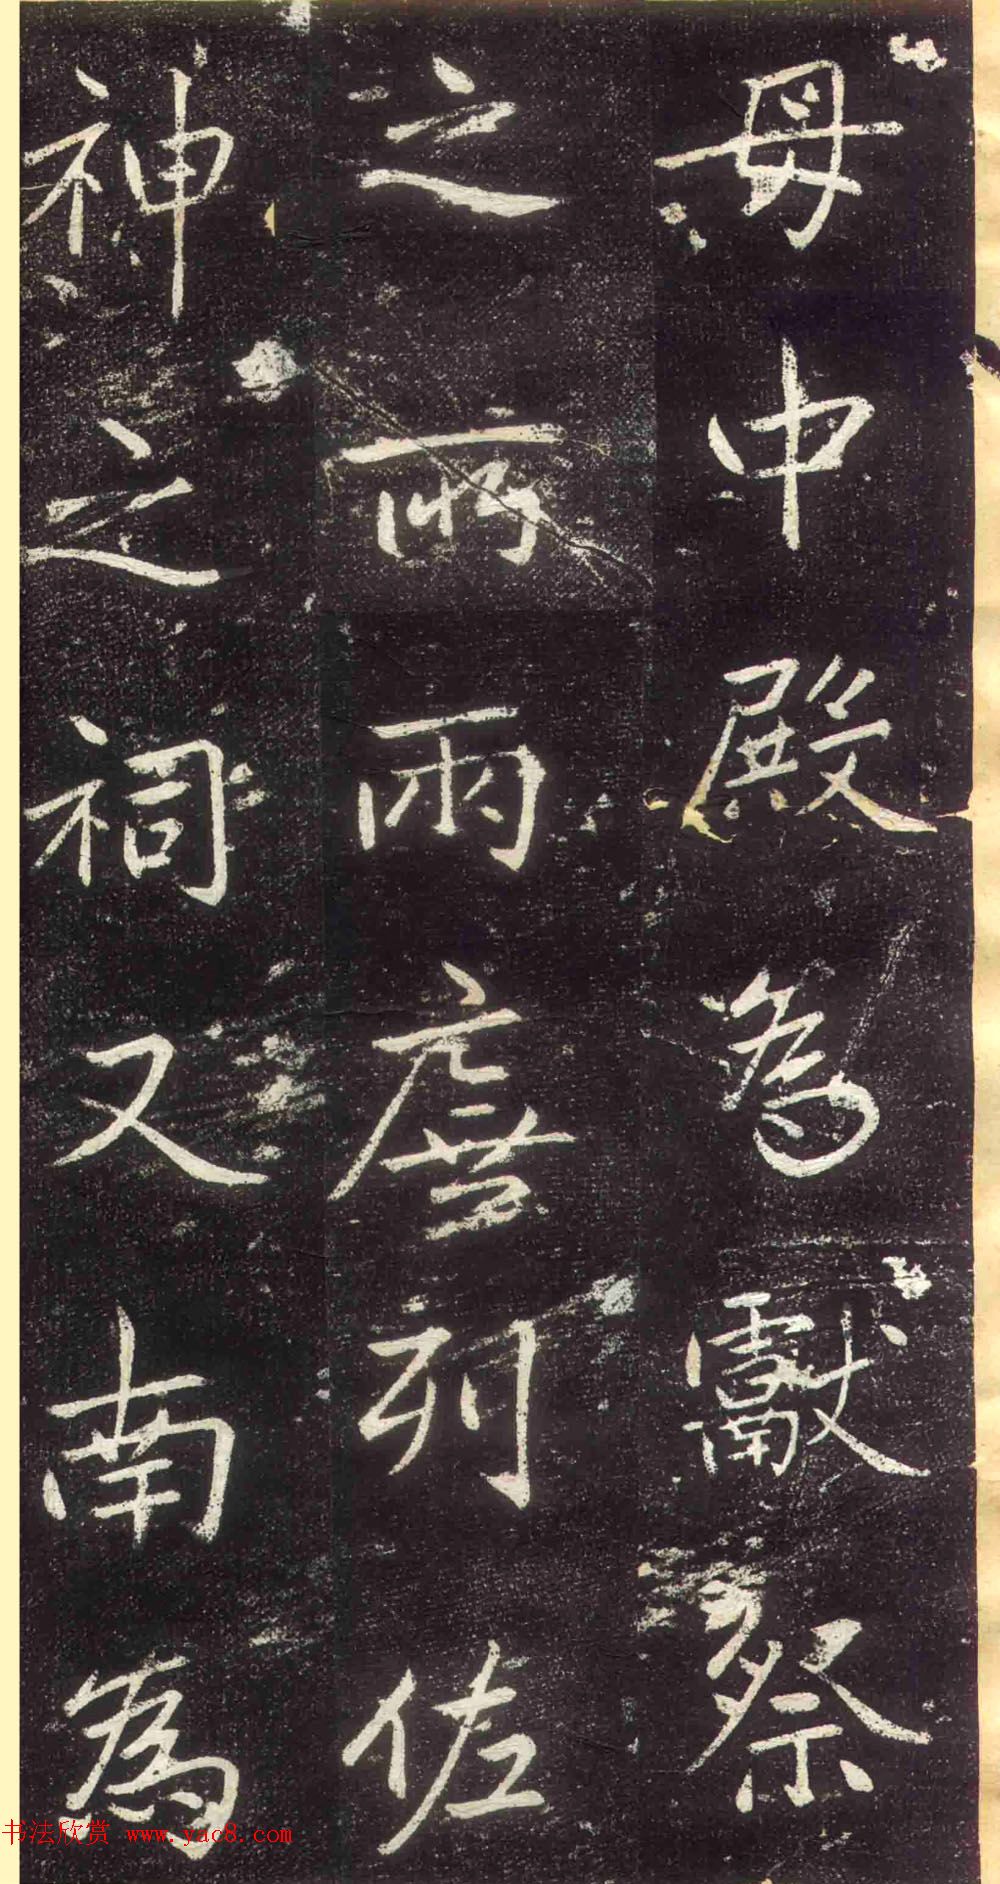 母中殿為獻祭
之所兩廡列佐
神之祠又南為
书法欣赏 www.yac8.com